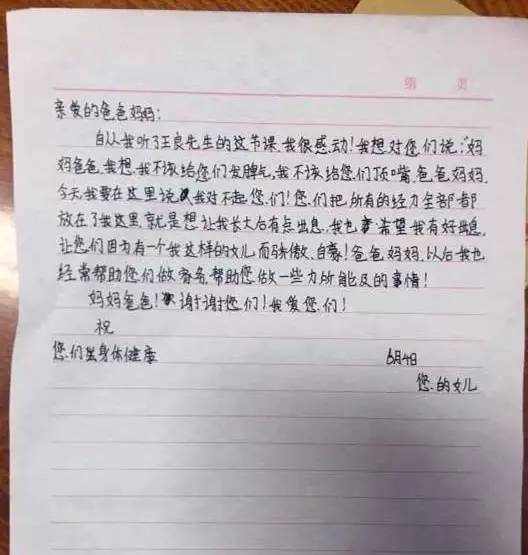 第 页
亲爱的爸爸妈妈:
自从我听了王良先生的这节课,我很感动!我想对您们说:"妈
妈爸爸,我想,我不该给您们发脾气,我不该给您们顶嘴,爸爸妈妈,
今天我要在这里说,我对不起您们!您们把所有的经力全部都
放在了我这里,就是想让我长大后有点出息,我也希望我有好出息,
让您们因为有一个我这样的女儿而骄傲、自豪!爸爸妈妈,以后我也
经常帮助您们做家务,帮助您做一些力所能及的事情!
妈妈爸爸!谢谢您们!我爱您们!
祝
您们 身体健康 6月4日
您的女儿